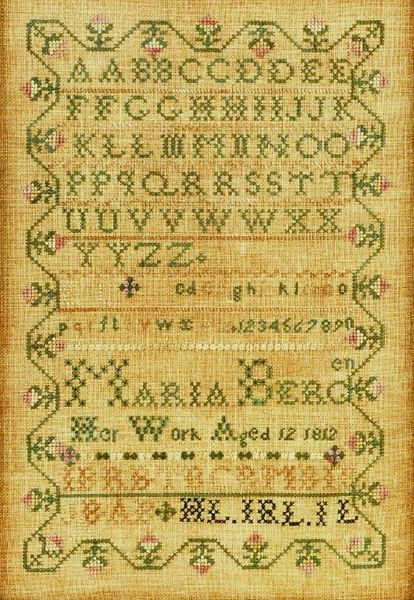 AABBCCDDEE
FFGGHHIIJJK
KLLMMNNOO
PPQQRRSSTT
UUVVWWXX
YYZZ
cd ghi kl o
p ft vwæ 1234567890
MARIA BERGen
Her Work Aged 12 1812
HL.IRL.IL